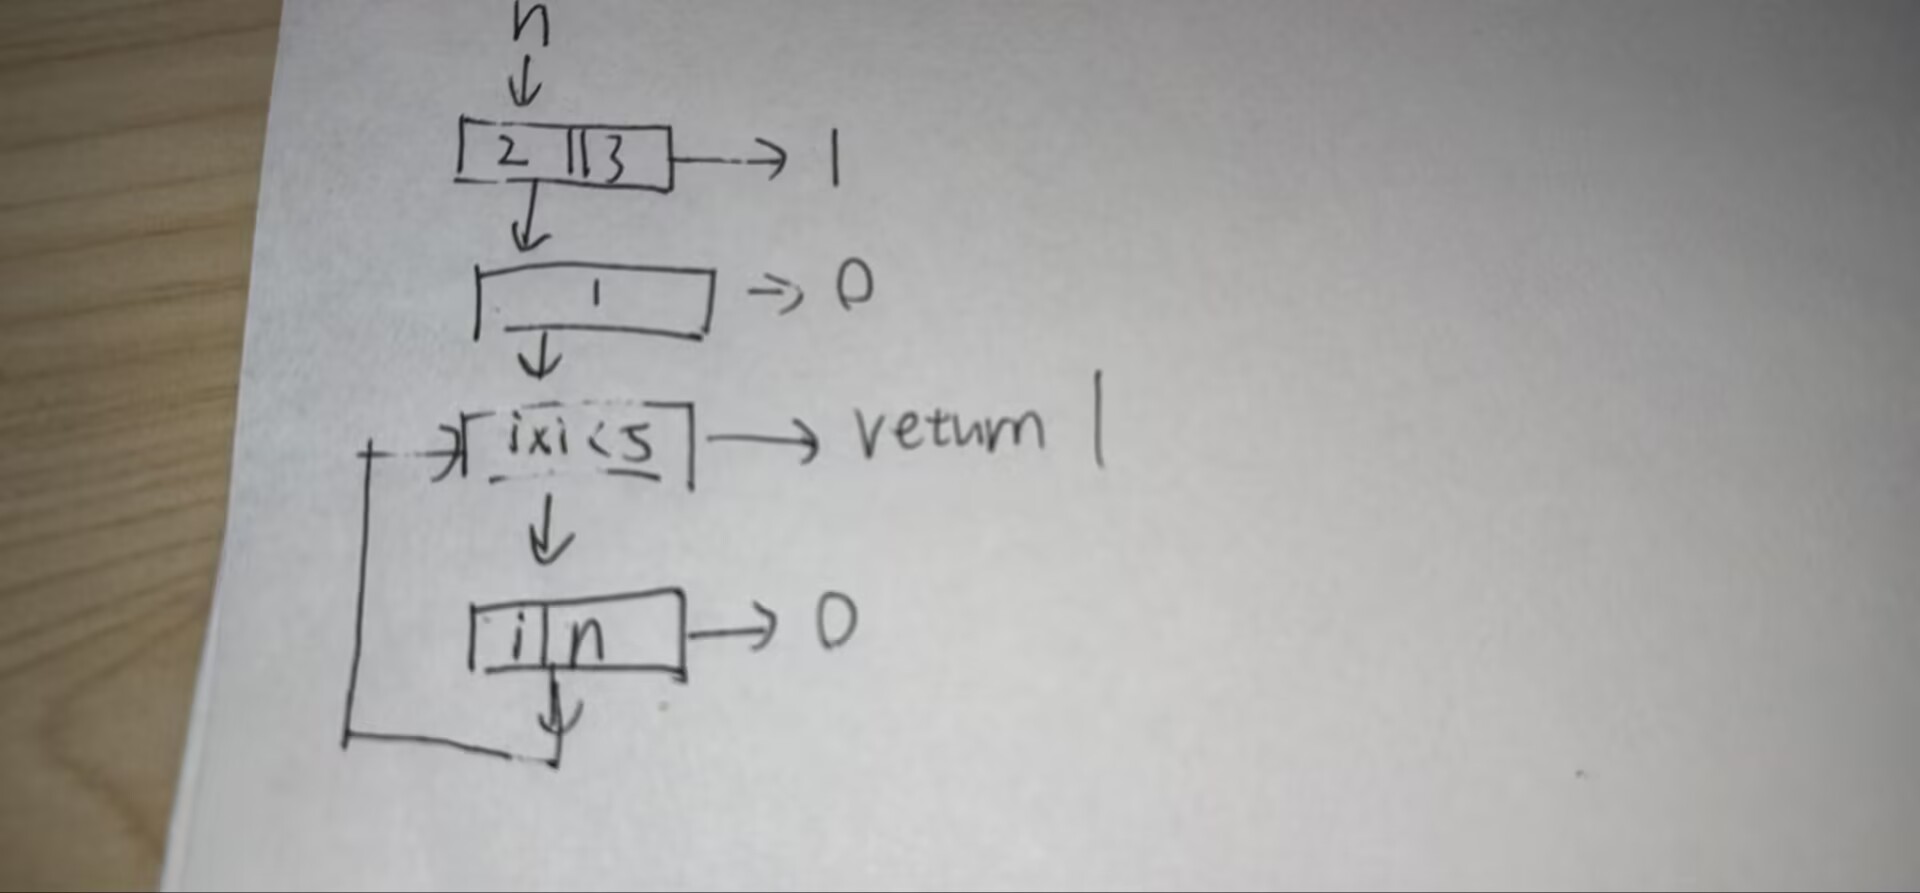 n
2 || 3 → 1
1 → 0
i×i<5 → return 1
i|n → 0